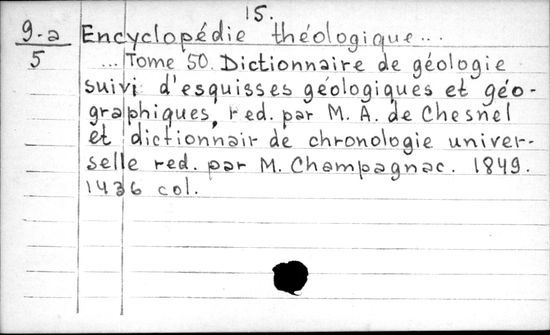 15.
9-a Encyclopédie théologique...
5 ... Tome 50. Dictionnaire de géologie
suivi d'esquisses géologiques et géo-
graphiques, red. par M. A. de Chesnel
et dictionnair de chronologie univer-
selle red. par M. Champagnac. 1849.
1436 col.